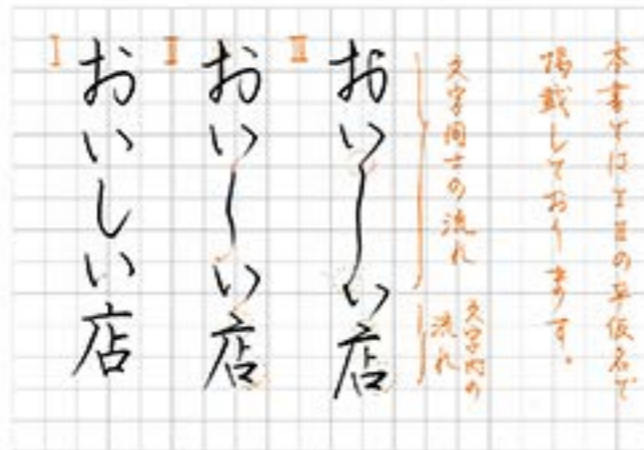 本書ではⅠⅡの平仮名で
掲載しております。
文字同士の流れ
文字内の
流れ
Ⅲ
おいしい店
Ⅱ
おいしい店
Ⅰ
おいしい店